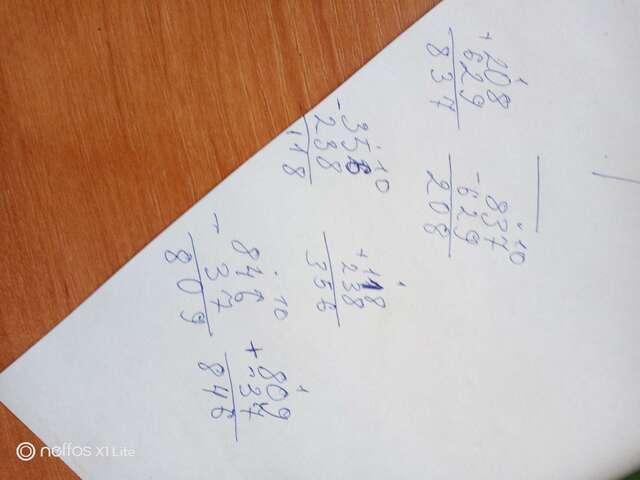 1
+208
629
837
. 10
-837
629
208
. 10
-356
238
118
1
+118
238
356
. 10
-846
37
809
1
+809
37
846
neffos X1 Lite